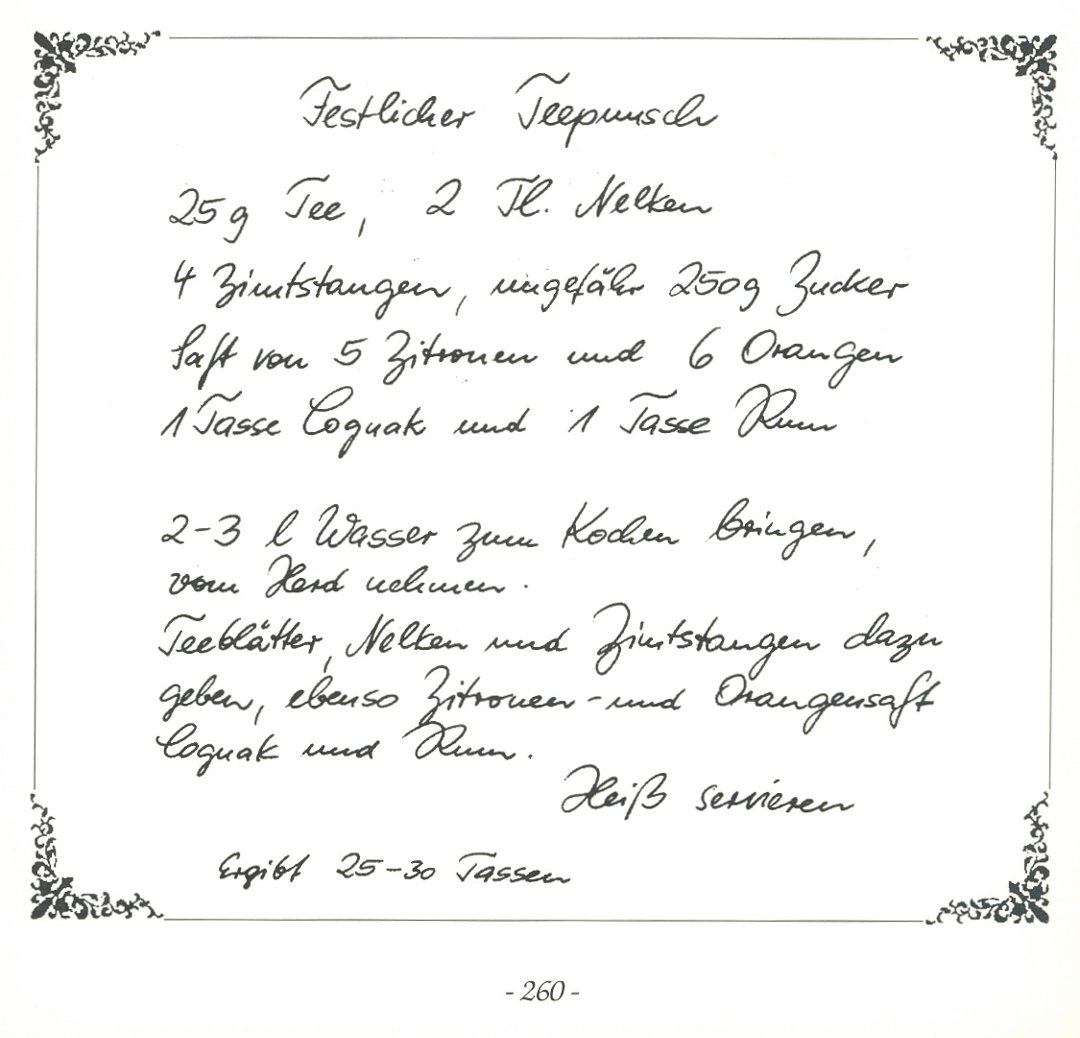 Festlicher Teepunsch
25g Tee, 2 Tl. Nelken
4 Zimtstangen, ungefähr 250g Zucker
Saft von 5 Zitronen und 6 Orangen
1 Tasse Cognak und 1 Tasse Rum
2-3 l Wasser zum Kochen bringen,
vom Herd nehmen.
Teeblätter, Nelken und Zimtstangen dazu
geben, ebenso Zitronen- und Orangensaft
Cognak und Rum.
Heiß servieren
Ergibt 25-30 Tassen
- 260 -